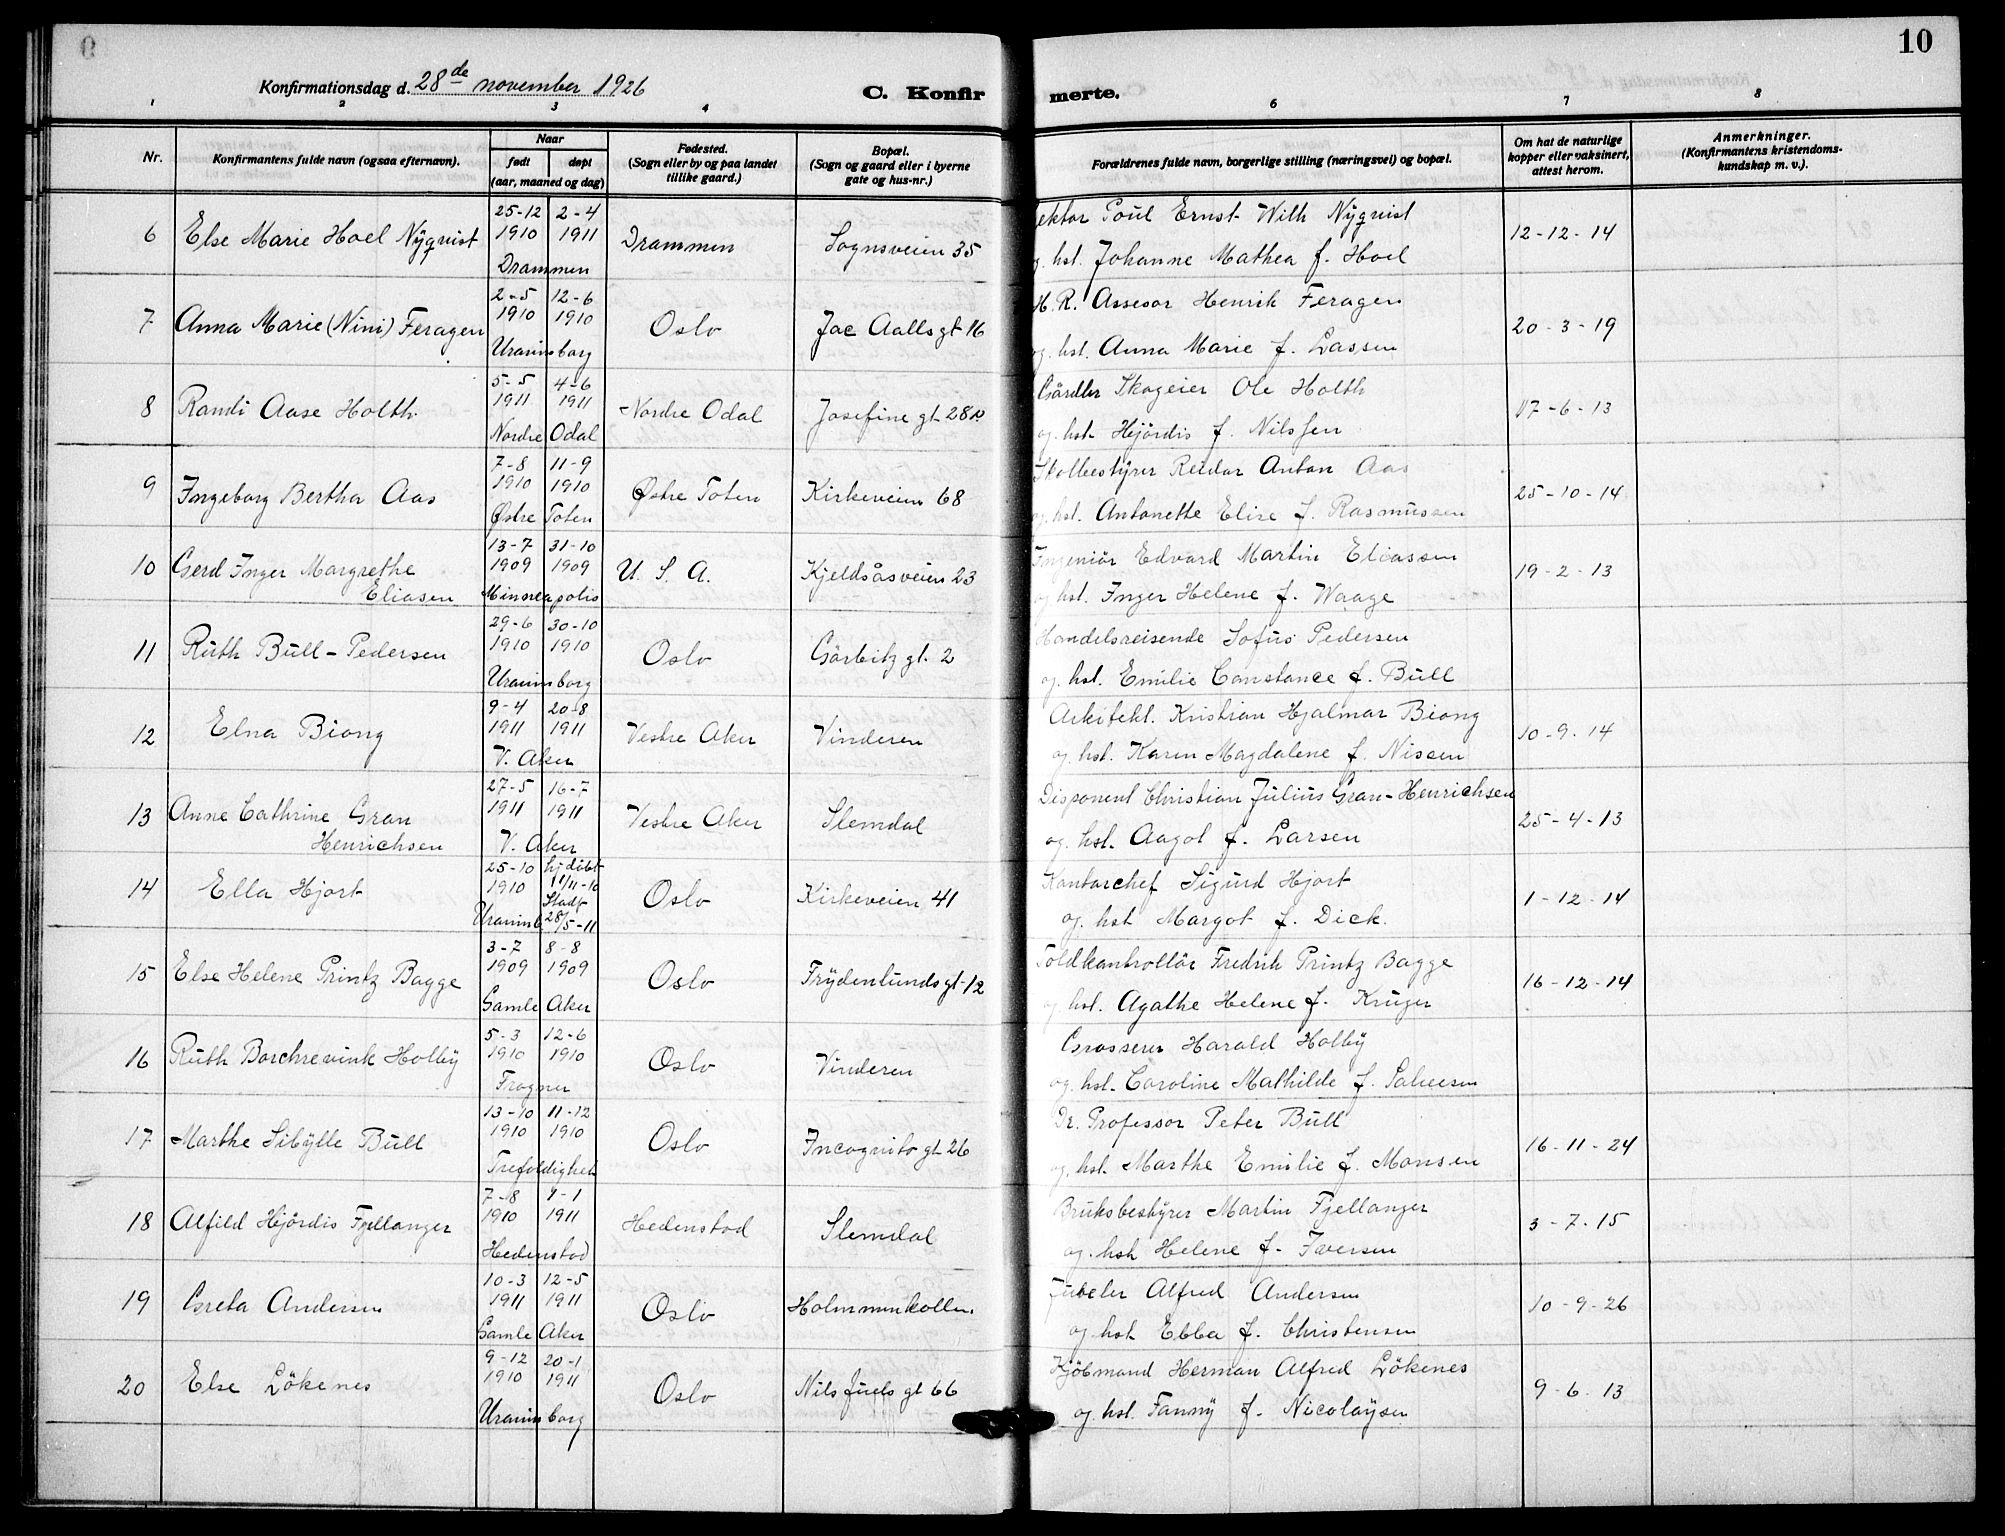 10
Konfirmationsdag d. 28de november 1926
C. Konfirmerte.
1 2 3 4 6 7 8
Nr. Konfirmantens fulde navn (ogsaa efternavn). Naar født døpt (aar, maaned og dag) Fødested. (Sogn eller by og paa landet tillike gaard.) Bopæl. (Sogn og gaard eller i byerne gate og hus-nr.) Forældrenes fulde navn, borgerlige stilling (næringsvei) og bopæl. Om hat de naturlige kopper eller vaksinert, attest herom. Anmerkninger. (Konfirmantens kristendomskundskap m. v.).
6 Else Marie Hoel Nÿqvist 25-12 1910 2-4 1911 Drammen Drammen Sognsveien 35 ektor Poul Ernst Wilh Nÿqvist
og hst. Johanne Mathea f. Hoel 12-12-14
7 Anna Marie (Nini) Feragen 2-5 1910 12-6 1910 Uranienborg Oslo Jac Aallsgt 16 H. R. Assesor Henrik Feragen
og hst. Anna Marie f. Lassen 20-3-19
8 Randi Aase Holth 5-5 1911 4-6 1911 Nordre Odal Nordre Odal Josefine gt 28 Gårdbr Skogeier Ole Holth
og hst. Hjördis f. Nilssen 17-6-13
9 Ingeborg Bertha Aas 7-8 1910 11-9 1910 Østre Toten Østre Toten Kirkeveien 68 Skolbestÿrer Reidar Anton Aas
og hst. Antonette Elise f. Rasmussen 25-10-14
10 Gerd Inger Margrethe Eliasen 13-7 1909 31-10 1909 Minneapolis U. S. A. Kjeldsåsveien 23 Ingeniör Edvard Martin Eliassen
og hst. Inger Helene f. Waage 19-2-13
11 Ruth Bull-Pedersen 29-6 1910 30-10 1910 Uranienborg Oslo Görbitz gt. 2 Handelsreisende Sofus Pedersen
og hst. Emilie Constance f. Bull
12 Elna Biong 9-4 1911 20-8 1911 V. Aker Vestre Aker Vinderen Arkitekt. Kristian Hjalmar Biong
og hst. Karen Magdalene f. Nissen 10-9-14
13 Anne Cathrine Gran Henrichsen 27-5 1911 16-7 1911 V. Aker Vestre Aker Slemdal Disponent Christian Julius Gran-Henrichsen
og hst. Aagot f. Larsen 25-4-13
14 Ella Hjort 25-10 1910 hj.döbt 11/11-10 Stadf 28/5-11 Uranienb. Oslo Kirkeveien 41 Kontorchef Sigurd Hjort
og hst Margot f. Dick. 1-12-14
15 Else Helene Printz Bagge 3-7 1909 8-8 1909 Gamle Aker Oslo Frÿdenlundsgt 12 Toldkontrollör Fredrik Printz Bagge
og hst. Agathe Helene f. Krüger 16-12-14
16 Ruth Borchrevink Holbÿ 5-3 1910 12-6 1910 Frogner Oslo Vinderen Grosserer Harald Holbÿ
og hst. Caroline Mathilde f.
17 Marthe Sibÿlle Bull 13-10 1910 11-12 1910 Trefoldighet Oslo Incognito gt 26 Dr. Professor Peter Bull
og hst. Marthe Emilie f. Monsen 16-11-24
18 Alfild Hjördis Fjellanger 7-8 1910 1-1 1911 Hedenstad Hedenstad Slemdal Bruksbestÿrer Martin Fjellanger
og hst Helene f. Iversen 3-7-15
19 Greta Andersen 10-3 1911 12-5 1911 Gamle Aker Oslo Holmmenkollen. Juveler Alfred Andersen
og hst Ebba f. Christensen 10-9-26
20 Else Lökenes 9-12 1910 20-1 1911 Uranienborg Oslo Nils Juels gt 66 Kjöbmand Herman Alfred Lökenes
og hst. Fannÿ f. Nicolaÿsen 9-6-13